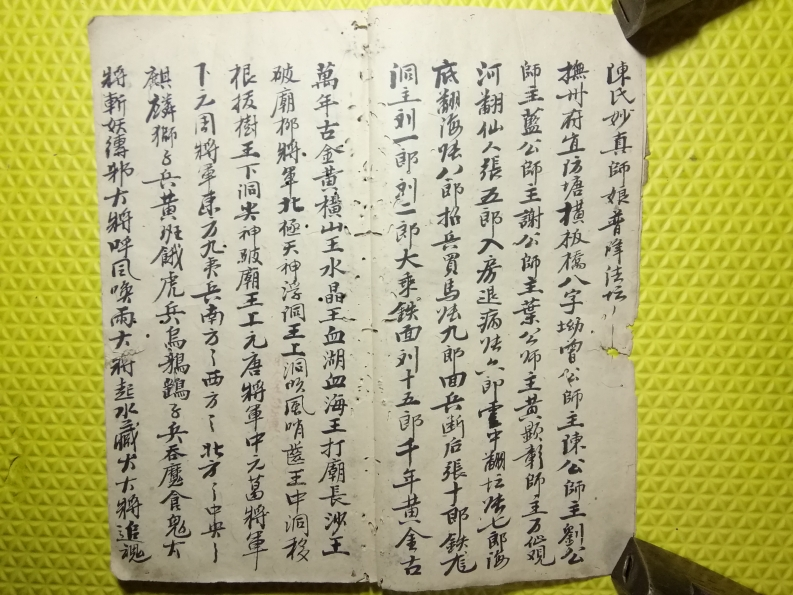 陳氏妙真師娘普降法坛〻
撫州府宜防塘橫板橋八字坳曾公師主陳公師主劉公
師主藍公師主謝公師主葉公師主黃顯彰師主万仙观
河翻仙人張五郎入房退病法六郎雲中翻坛法七郎海
底翻海法八郎招兵買馬法九郎面兵断后張十郎鉄
洞主刘一郎刘二郎大乘鉄面刘十五郎千年黄金古
萬年古金黄橫山王水晶王血湖血海王打廟長沙王
破廟柳將軍北極天神浮洞王上洞吹風哨王中洞移
根拔樹王下洞尖神破廟王上元唐將軍中元葛將軍
下元周將軍東方九夷兵南方〻西方〻北方〻中央〻
麒麟獅子兵黄班餓虎兵烏鴉鷂子兵吞魔食鬼大
將斬妖縛邪大將呼風喚雨大將起水藏火大將追魂